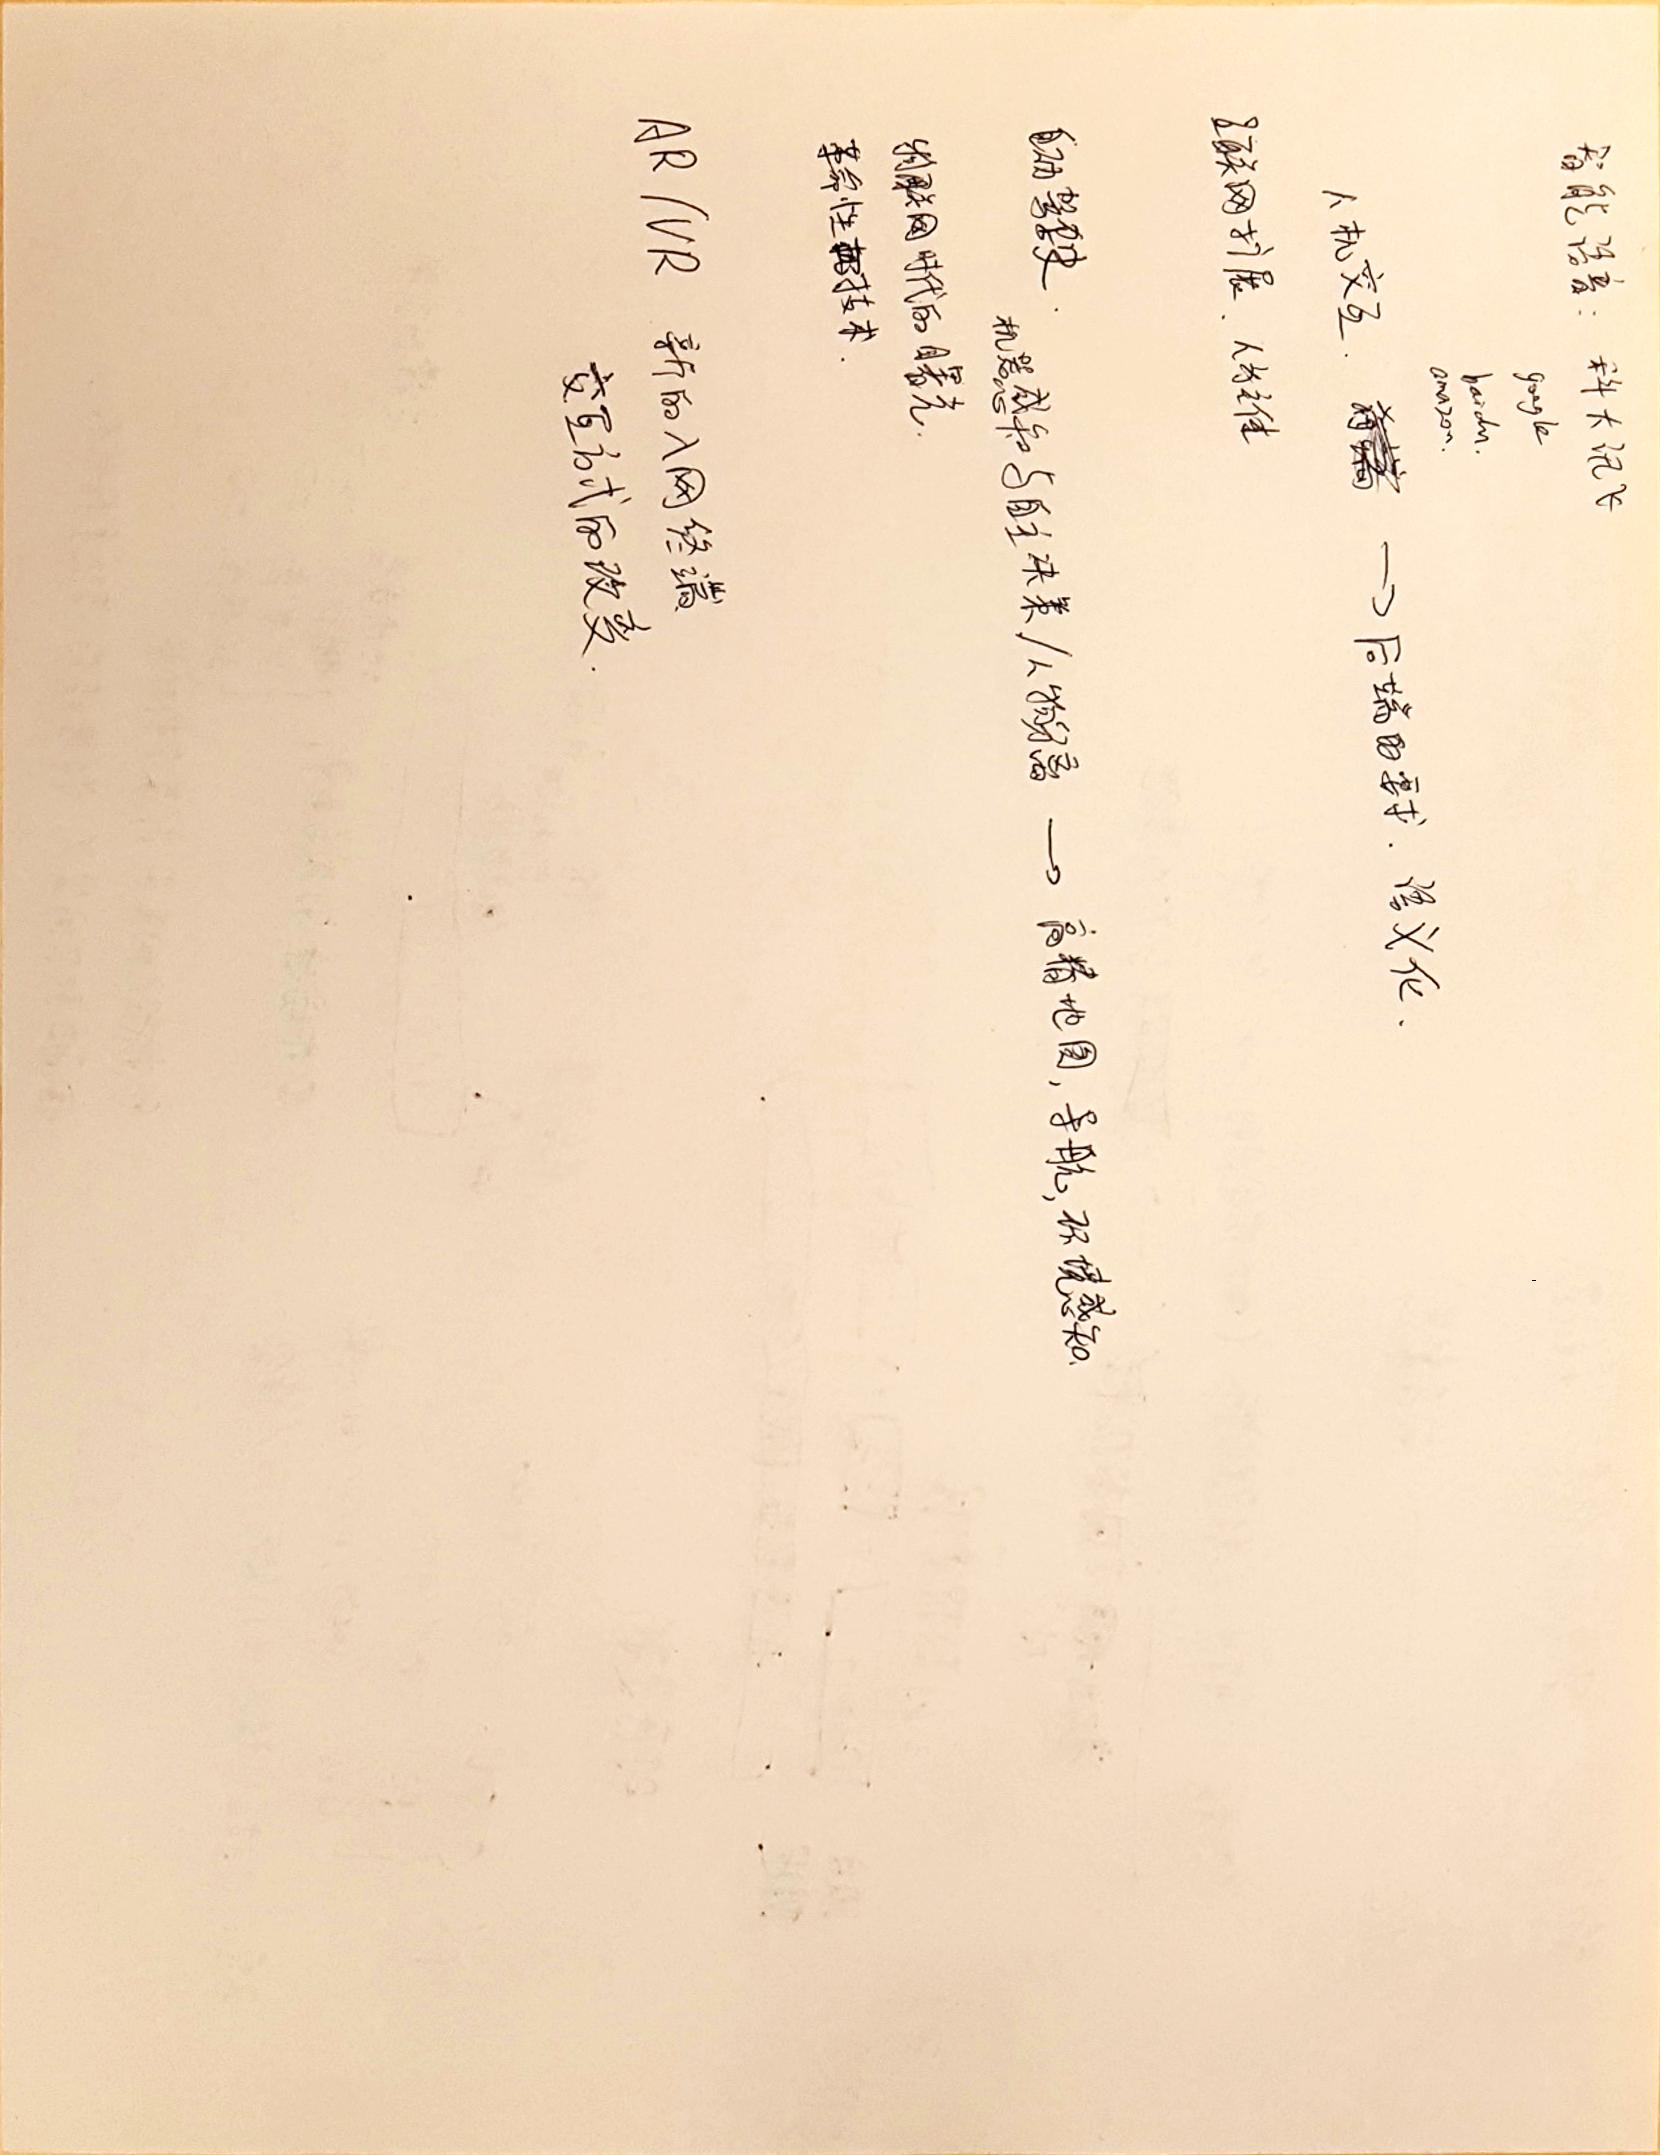 智能语音: 科大讯飞
google
baidu.
amazon.
人机交互. → 后端的要求. 语义化.
互联网扩展. 人为主体
自动驾驶.
机器感知与自主决策/人物分离 → 高精地图, 导航, 环境感知.
物联网时代的曙光.
革命性技术.
AR/VR 新的入网终端
交互方式的改变.